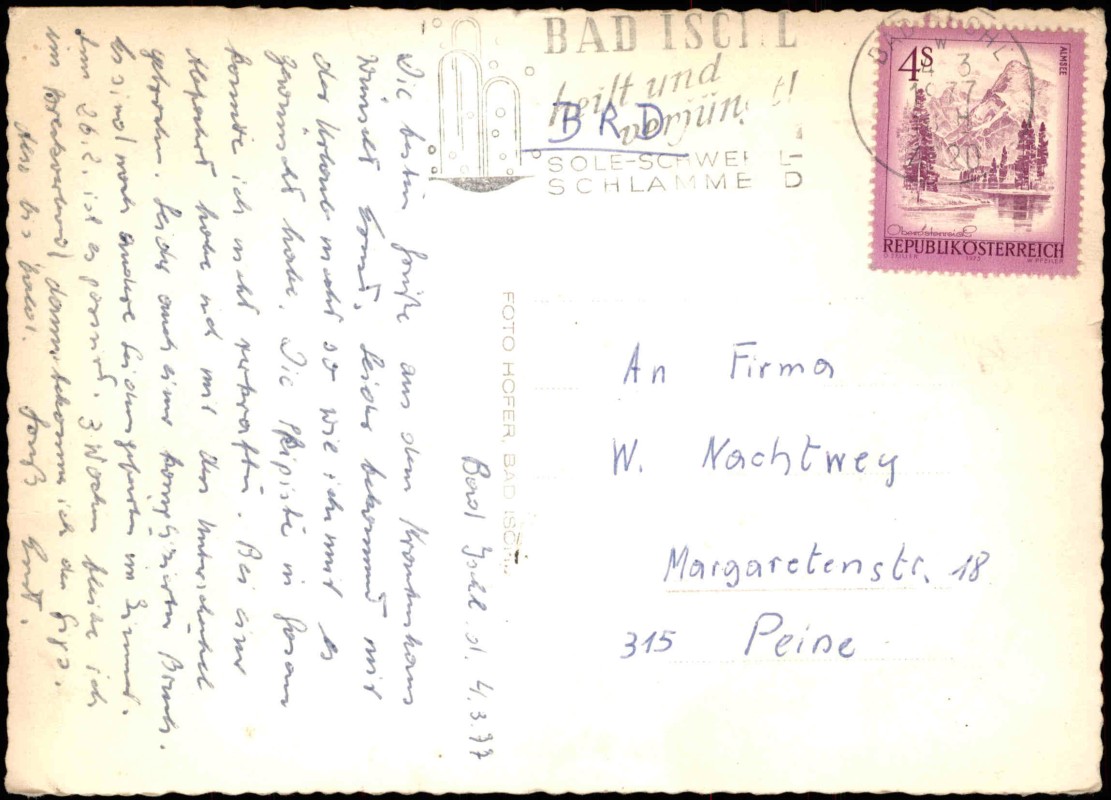 BAD ISCHL
heilt und
verjüngt!
SOLE-SCHWEFEL-
SCHLAMMBAD
BAD ISCHL
4 3
1977
20
4S
ALMSEE
Oberösterreich
REPUBLIK ÖSTERREICH
BRD
An Firma
W. Nachtwey
Margaretenstr. 18
315 Peine
FOTO HOFER, BAD ISCHL
Bad Ischl d. 4.3.77
Die besten Grüße aus dem Krankenhaus
wünscht Ernst. Leider bekommt mir
der Urlaub nicht so wie ich mir es
gewünscht habe. Die Skipiste in Gosau
konnte ich nicht verkraften. Bei einer
Abfahrt habe ich mir den Unterschenkel
gebrochen. Leider auch einer komplizierten Bruch.
Es sind noch andere Leidensgefährten im Zimmer.
Am 26.2. ist es passiert. 3 Wochen bleibe ich
im Streckverband, dann bekomme ich den Gips.
Also bis bald. Gruß Ernst.